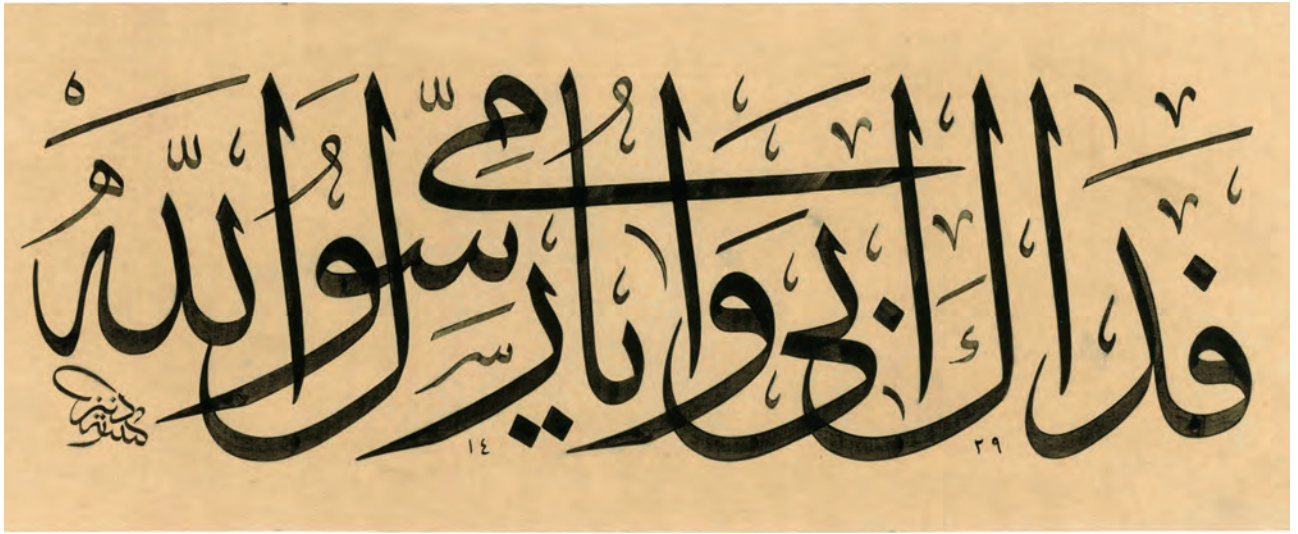 فَدَاكَ أَبِي وَأُمِّي يَا رَسُولَ اللّٰهِ
١٤٢٩